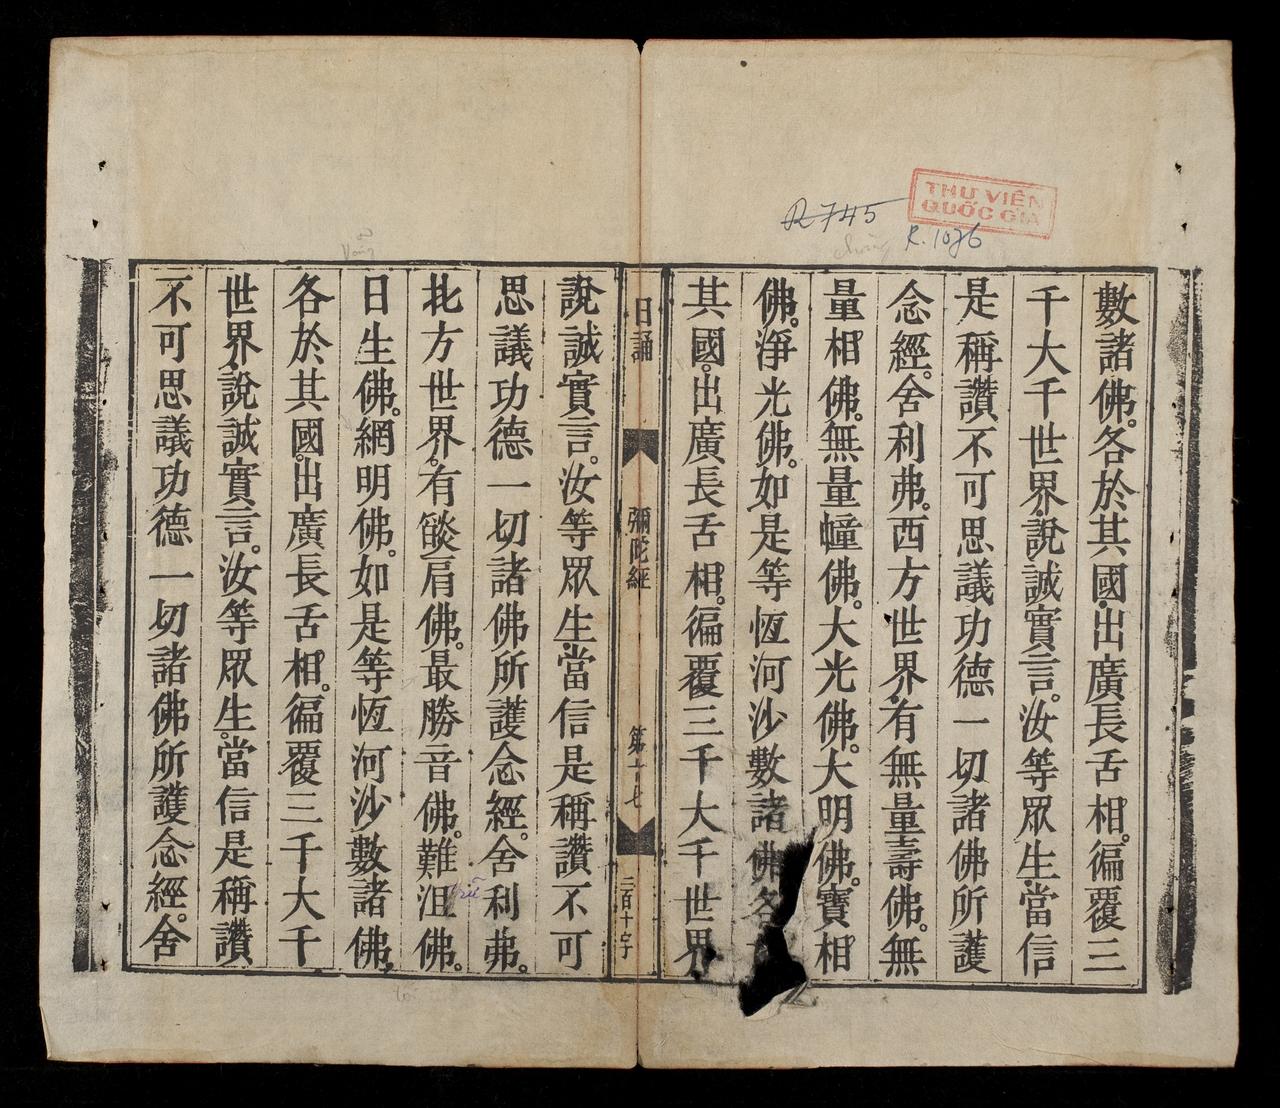 THƯ VIÊN
QUỐC GIA
R 745
R. 1076
數諸佛。各於其國。出廣長舌相。徧覆三
千大千世界。說誠實言。汝等眾生。當信
是稱讚不可思議功德一切諸佛所護
念經。舍利弗。西方世界。有無量壽佛。無
量相佛。無量幢佛。大光佛。大明佛。寶相
佛。淨光佛。如是等恆河沙數諸佛各
其國。出廣長舌相。徧覆三千大千世界
日誦 彌陀經 第十七 二百十字
說誠實言。汝等眾生。當信是稱讚不可
思議功德一切諸佛所護念經。舍利弗。
北方世界。有燄肩佛。最勝音佛。難沮佛。
日生佛。網明佛。如是等恆河沙數諸佛。
各於其國。出廣長舌相。徧覆三千大千
世界。說誠實言。汝等眾生。當信是稱讚
不可思議功德一切諸佛所護念經。舍